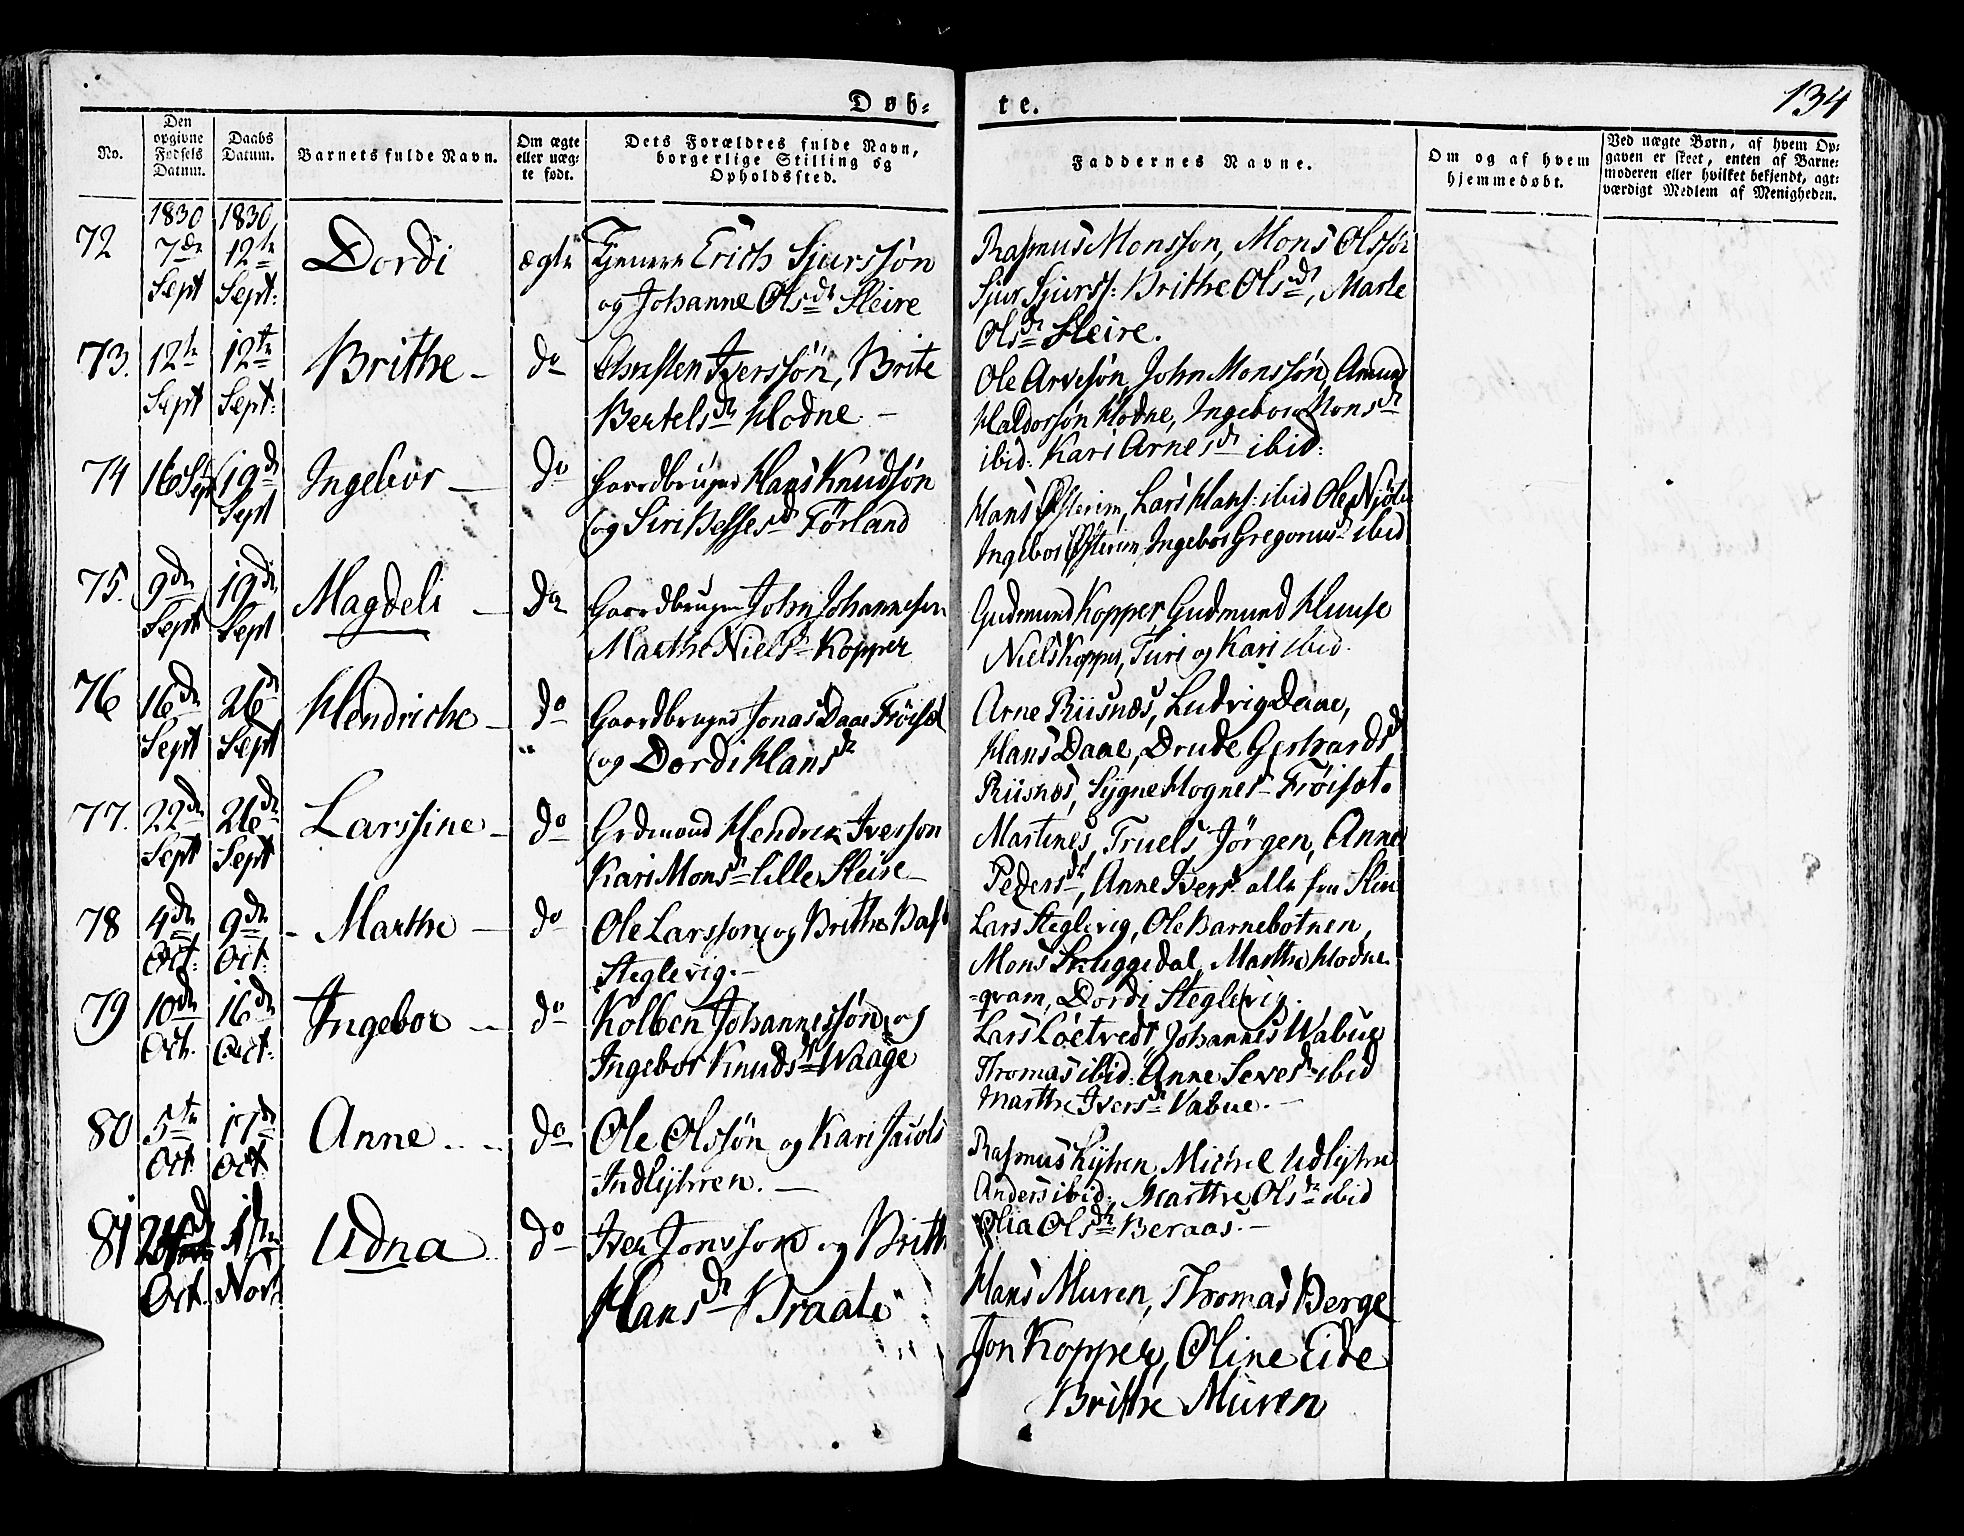 Døb-
te.
134
No.
Den opgivne Fødsels Datum.
Daabs Datum.
Barnets fulde Navn.
Om ægte eller uægte født.
Dets Forældres fulde Navn, borgerlige Stilling og Opholdssted.
Faddernes Navne.
Om og af hvem hjemmedøbt.
Ved uægte Børn, af hvem Opgaven er skeet, enten af Barnemoderen eller hvilket bekjendt, agtværdigt Medlem af Menigheden.
72 1830 7de Sept 1830 12te Sept: Dordi ægte Tjenere Erich Sjurssøn
og Johanne Olsdr Sleire
Rasmus Monsson, Mons Olssøn
Sjur Sjurss: Brithe Olsdr, Marte
Olsdr Sleire.
73. 12te Sept 12te Sept: Brithe do Christen Iverssøn, Brite
Bertelsdr Hodne
Ole Arvesøn, John Monssøn, Amund
Haldorsøn Hodne, Ingebor Monsdr
ibid: Kari Arnesdr ibid:
74 16 Sept 19de Sept Ingebor do Gaardbruger Hans Knudsøn
og Siri Besesdr Førland
Hans Østerim, Lars Hans: ibid Ole
Ingebor Østerim, Ingebor Gregoriusdr ibid
75. 9de Sept 19de Sept Magdeli do Gaardbruger John Johannesen
Marthe Nielsdr Kopper
Gudmund Kopper, Gudmund Huuse
Niels Kopper, Turi og Kari ibid.
76 16de Sept 26de Sept Hendriche do Gaardbruger Jonas Daae Frøisæt
og Dordi Hansdr
Arne Riisnæs, Ludvig Daae,
Hans Daae, Drude Gerhardsdr
Riisnæs, Sygne Mognesdr Frøisæt.
77. 22de Sept 26de Sept Larssine do Grdmand Hendrik Iversson
Kari Monsdr lille Sleire
Martines, Truels, Jørgen, Anne
Pedersdr, Anne Iversdr alle fra
78 4de Oct: 9de Oct: Marthe do Ole Larsson og Brithe
Steglevig.
Lars Steglevig, Ole Barnebotnen,
Mons Skuggedal, Marthe Hodne
-gram, Dordi Steglevig.
79 10de Oct. 16de Oct: Ingebor do Kolben Johannessøn og
Ingebor Knudsdr Waage
Lars Løetvedt, Johannes Wabue
Thomas ibid: Anne Seversdr ibid
Marthe Iversdr Vabue.
80 5te Oct 17de Oct Anne do Ole Olssøn og Kari Jacobs
Indlyhren.
Rasmus Lyhren, Michel Udlyhre
Anders ibid: Marthe Olsdr ibid
Olia Olsdr Beraas.
81 Oct. 1ste Nov: Udna do Iver Jonsson og Brith
Hansdr Braate
Hans Muren, Thomas Berge
Jon Kopper, Oline Eide
Brithe Muren